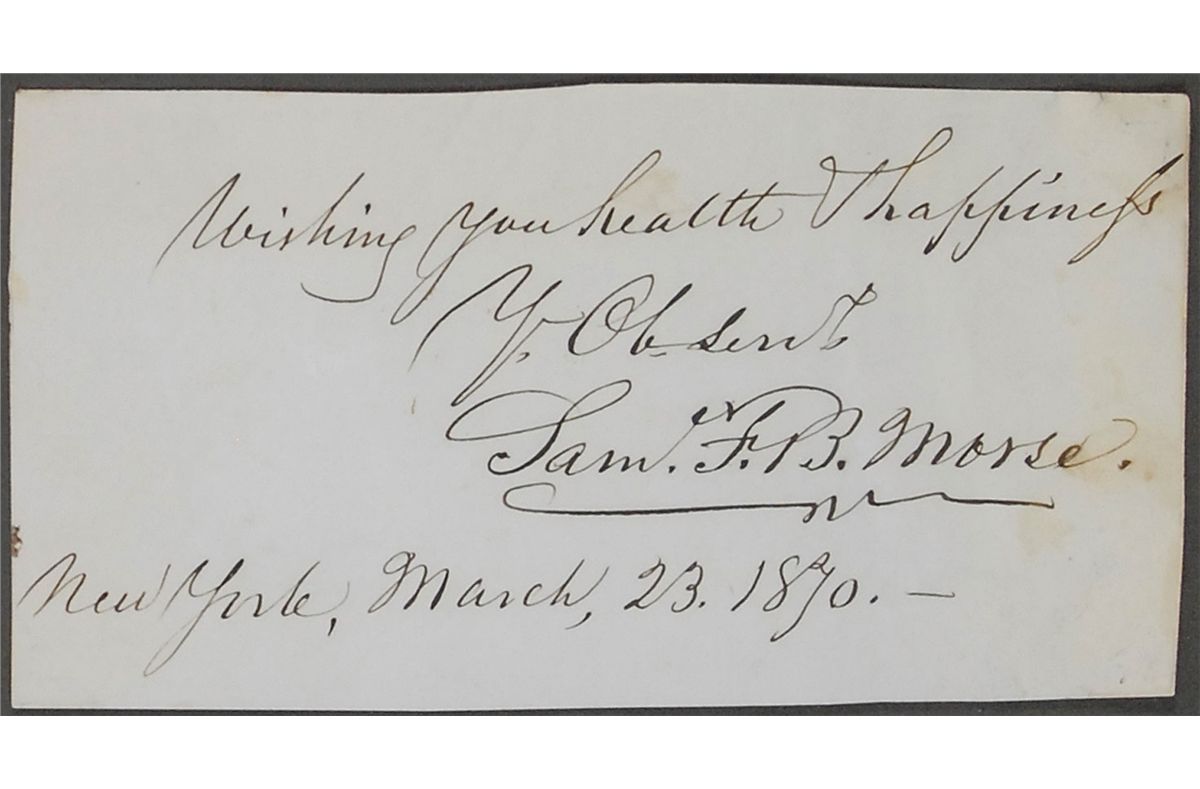 Wishing you health & happiness
Y. Ob. servt
Saml. F. B. Morse.
New York, March, 23. 1870. —